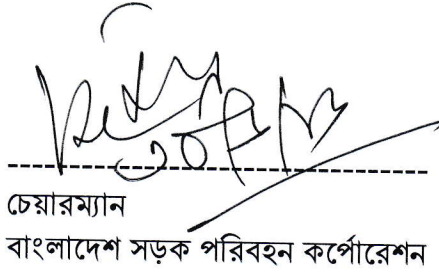 চেয়ারম্যান
বাংলাদেশ সড়ক পরিবহন কর্পোরেশন